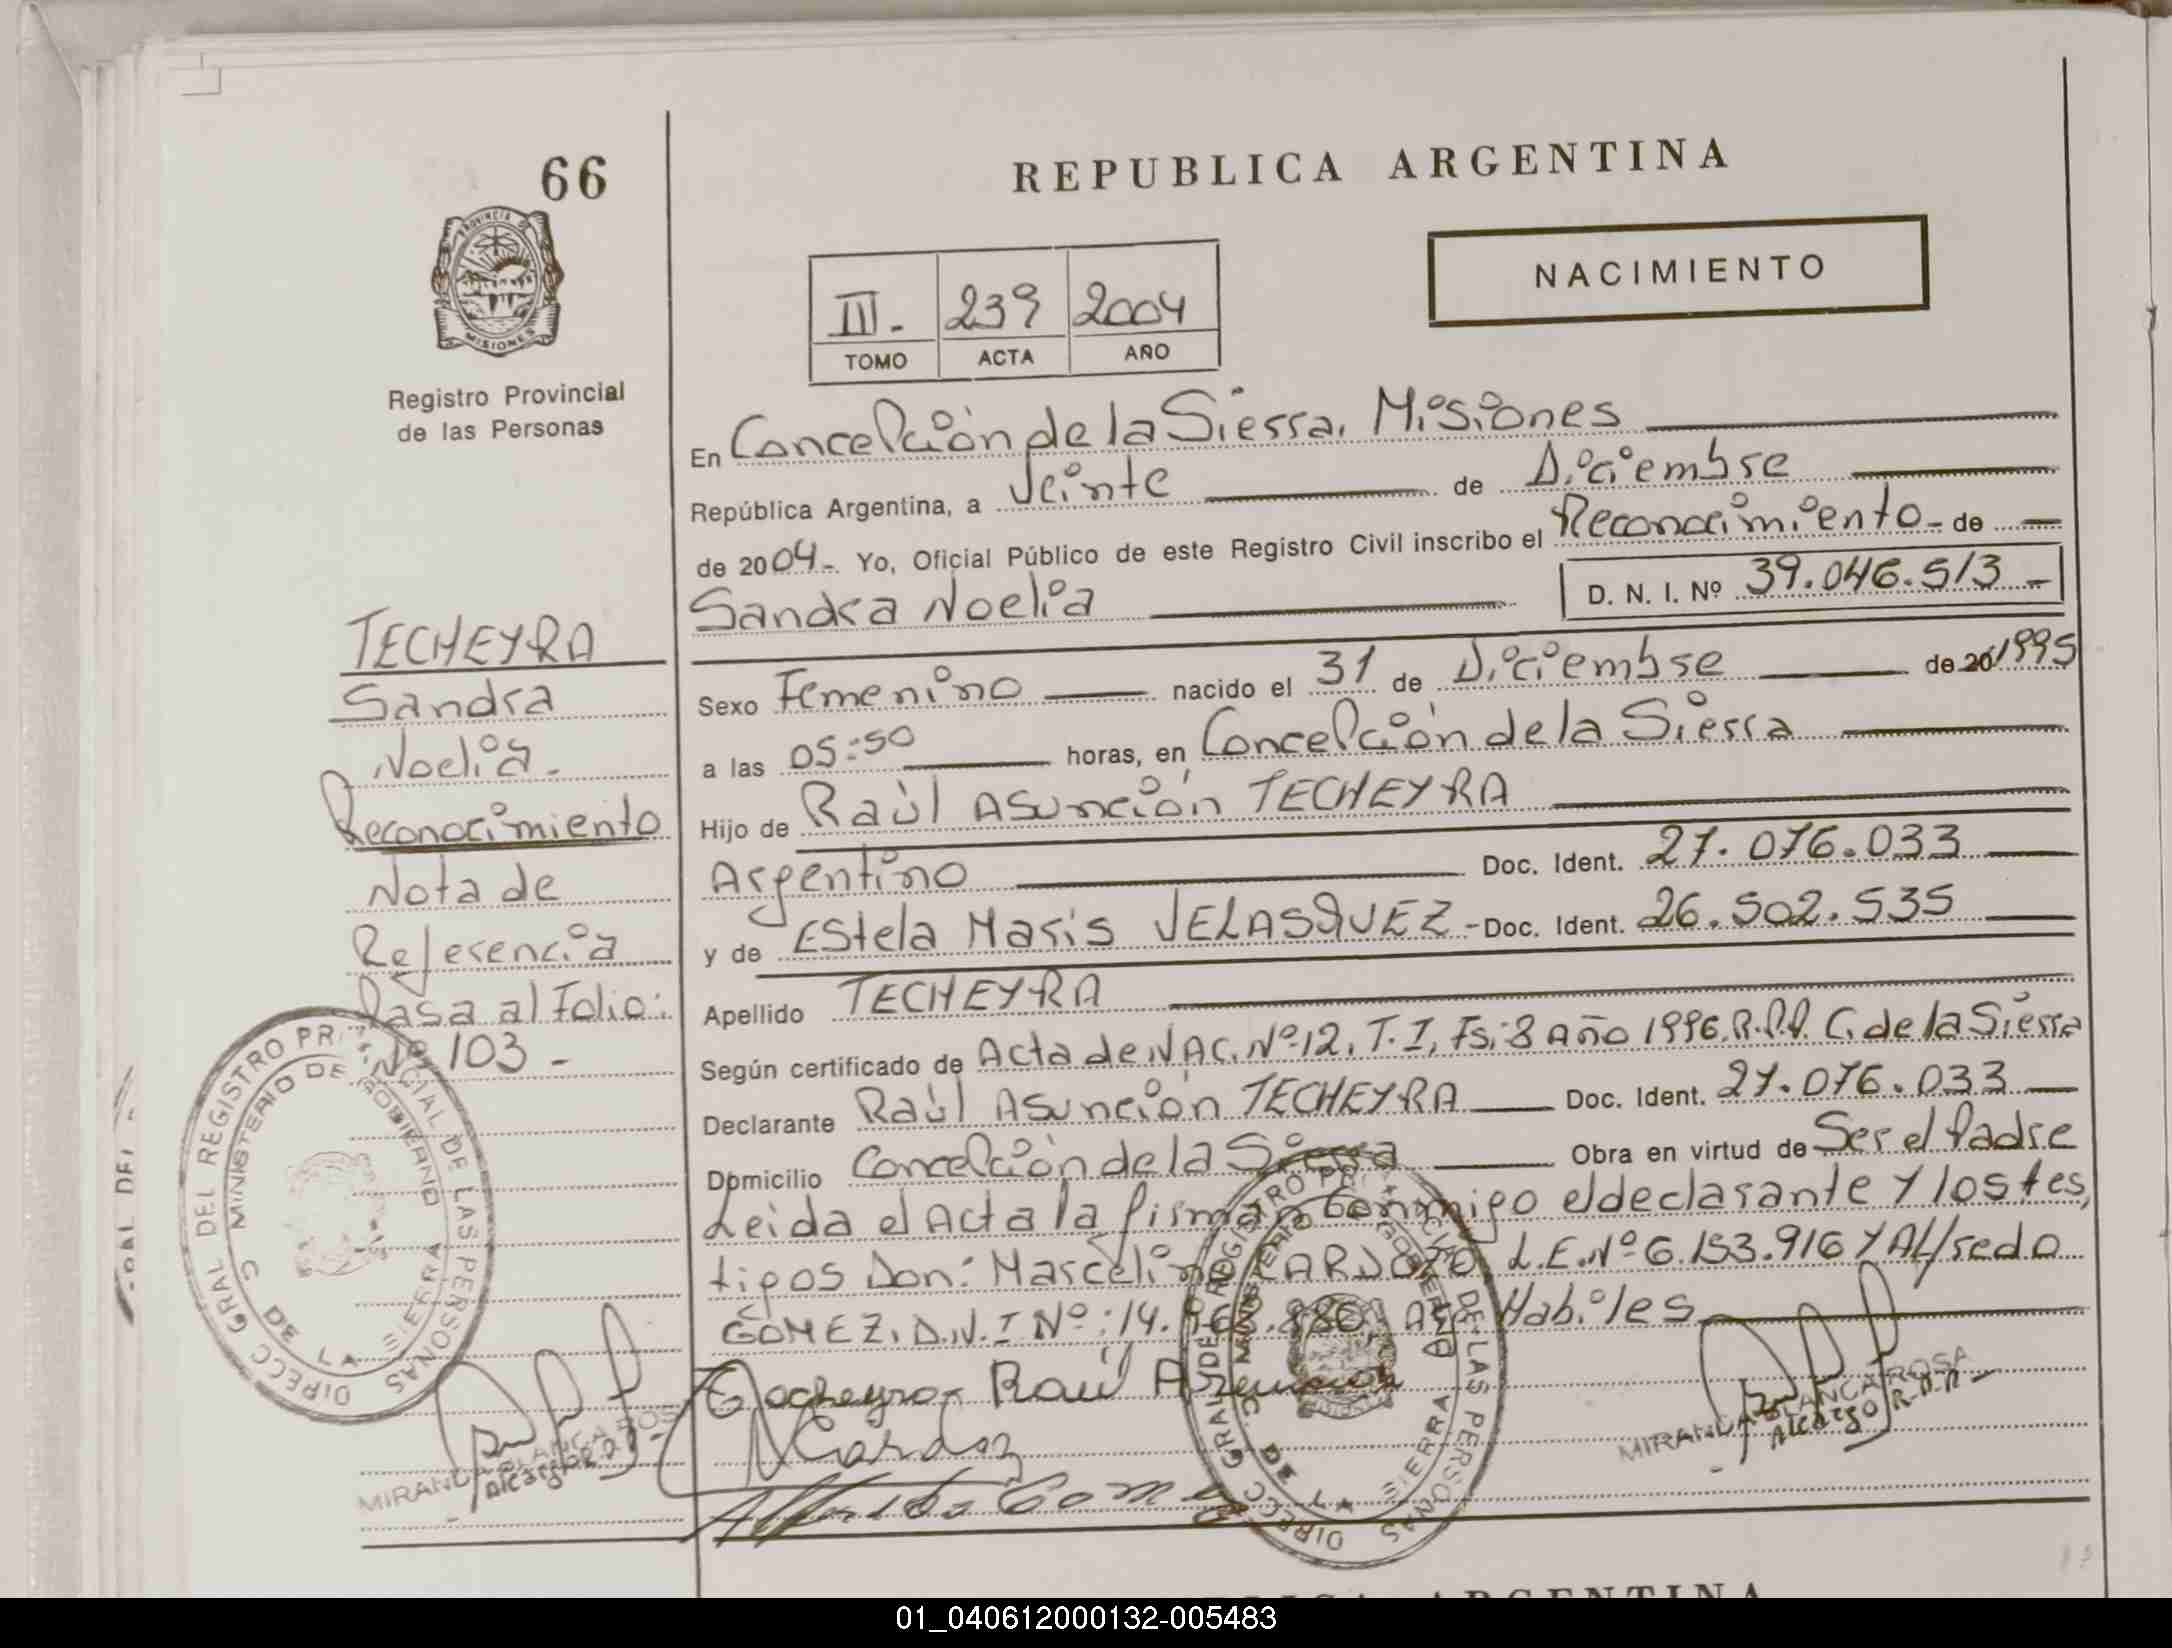 66
REPUBLICA ARGENTINA
PROVINCIA DE
MISIONES
NACIMIENTO
III.- 239 2004
TOMO ACTA AÑO
Registro Provincial
de las Personas
En Concepción de la Sierra. Misiones
República Argentina, a Veinte de Diciembre
de 2004.- Yo, Oficial Público de este Registro Civil inscribo el Reconocimiento- de
Sandra Noelia D. N. I. Nº 39.046.513-
TECHEYRA
Sandra
Noelia.-
Reconocimiento
Nota de
Referencia
Pasa al Folio:
Nº 103-
Sexo Femenino nacido el 31 de Diciembre de 20 1995
a las 05:50 horas, en Concepción de la Sierra
Hijo de Raúl Asunción TECHEYRA
Argentino Doc. Ident. 27.076.033
y de Estela Maris VELASQUEZ - Doc. Ident. 26.502.535
Apellido TECHEYRA
Según certificado de Acta de NAC. Nº 12, T. I, Fs: 8 Año 1996. R.P.P. C. de la Sierra
Declarante Raúl Asunción TECHEYRA Doc. Ident. 27.076.033
Domicilio Concepción de la Sierra Obra en virtud de Ser el Padre
Leida el Acta la firman Conmigo el declarante Y los tes,
tigos Don: Marcelino CARDOZO L.E.Nº 6.153.916 Y Alfredo
GÓMEZ. D.N.I Nº: 14. .880, Habiles
Techeyra Raúl Asunción
DIRECC GRAL DEL REGISTRO PROVINCIAL DE LAS PERSONAS
MINISTERIO DE GOBIERNO
C DE LA SIERRA
DIRECC GRAL DEL REGISTRO PROVINCIAL DE LAS PERSONAS
MINISTERIO DE GOBIERNO
C DE LA SIERRA
MIRANDA BLANCA ROSA
MIRANDA BLANCA ROSA
01_040612000132-005483